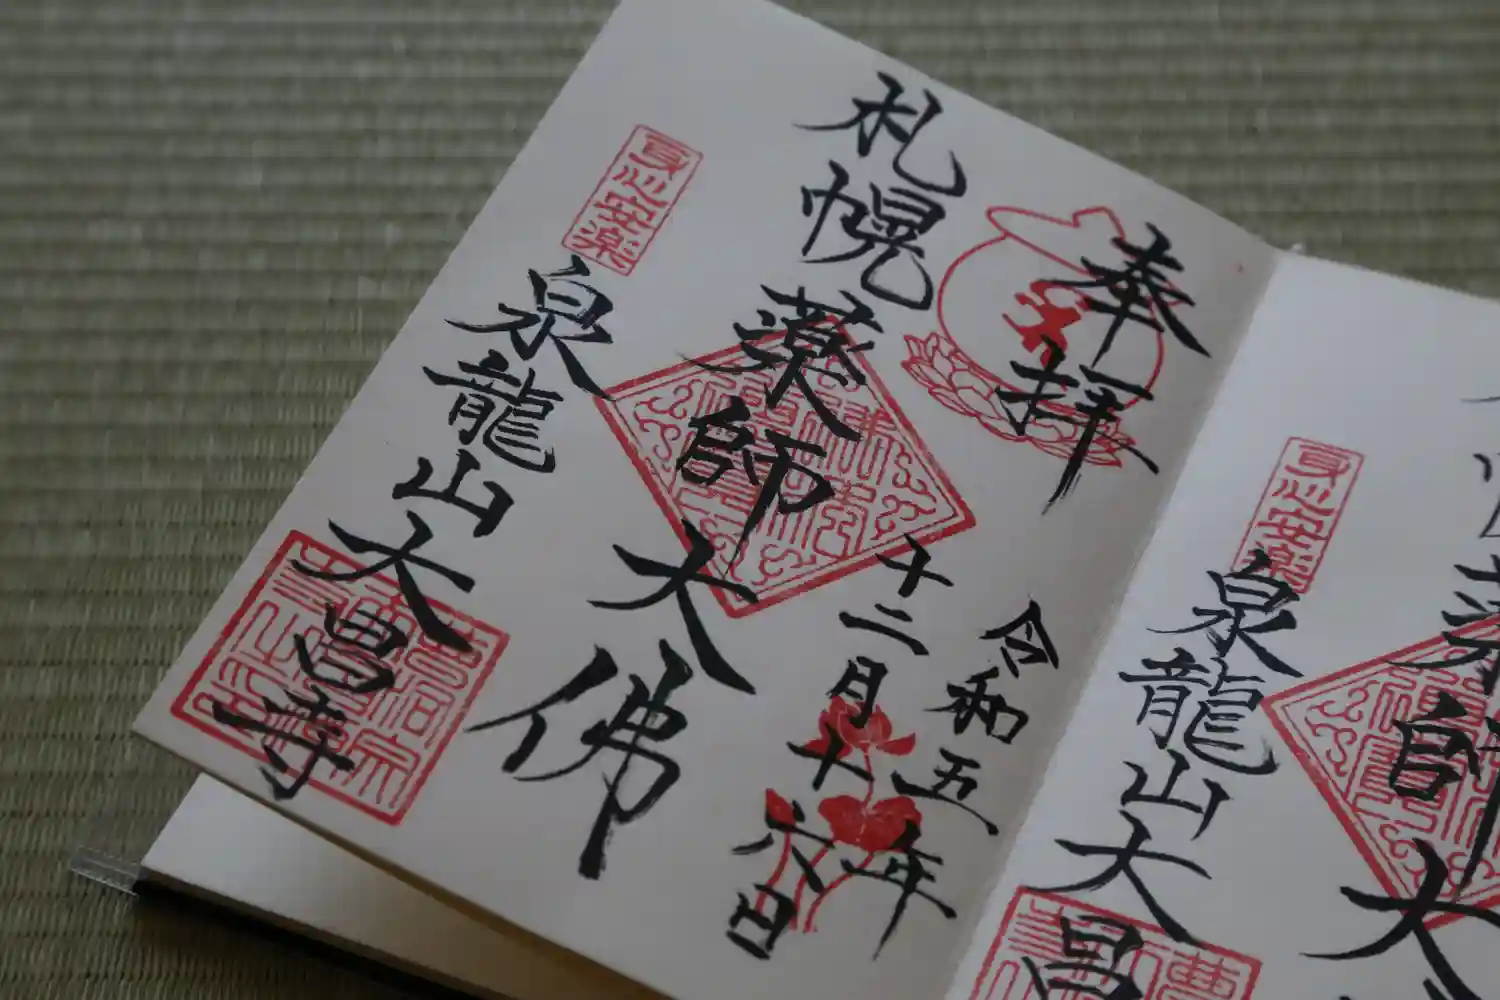 奉拝
令和五年
十二月十六日
札幌薬師大佛
身心安楽
泉龍山大昌寺
師大
身心安楽
泉龍山大昌